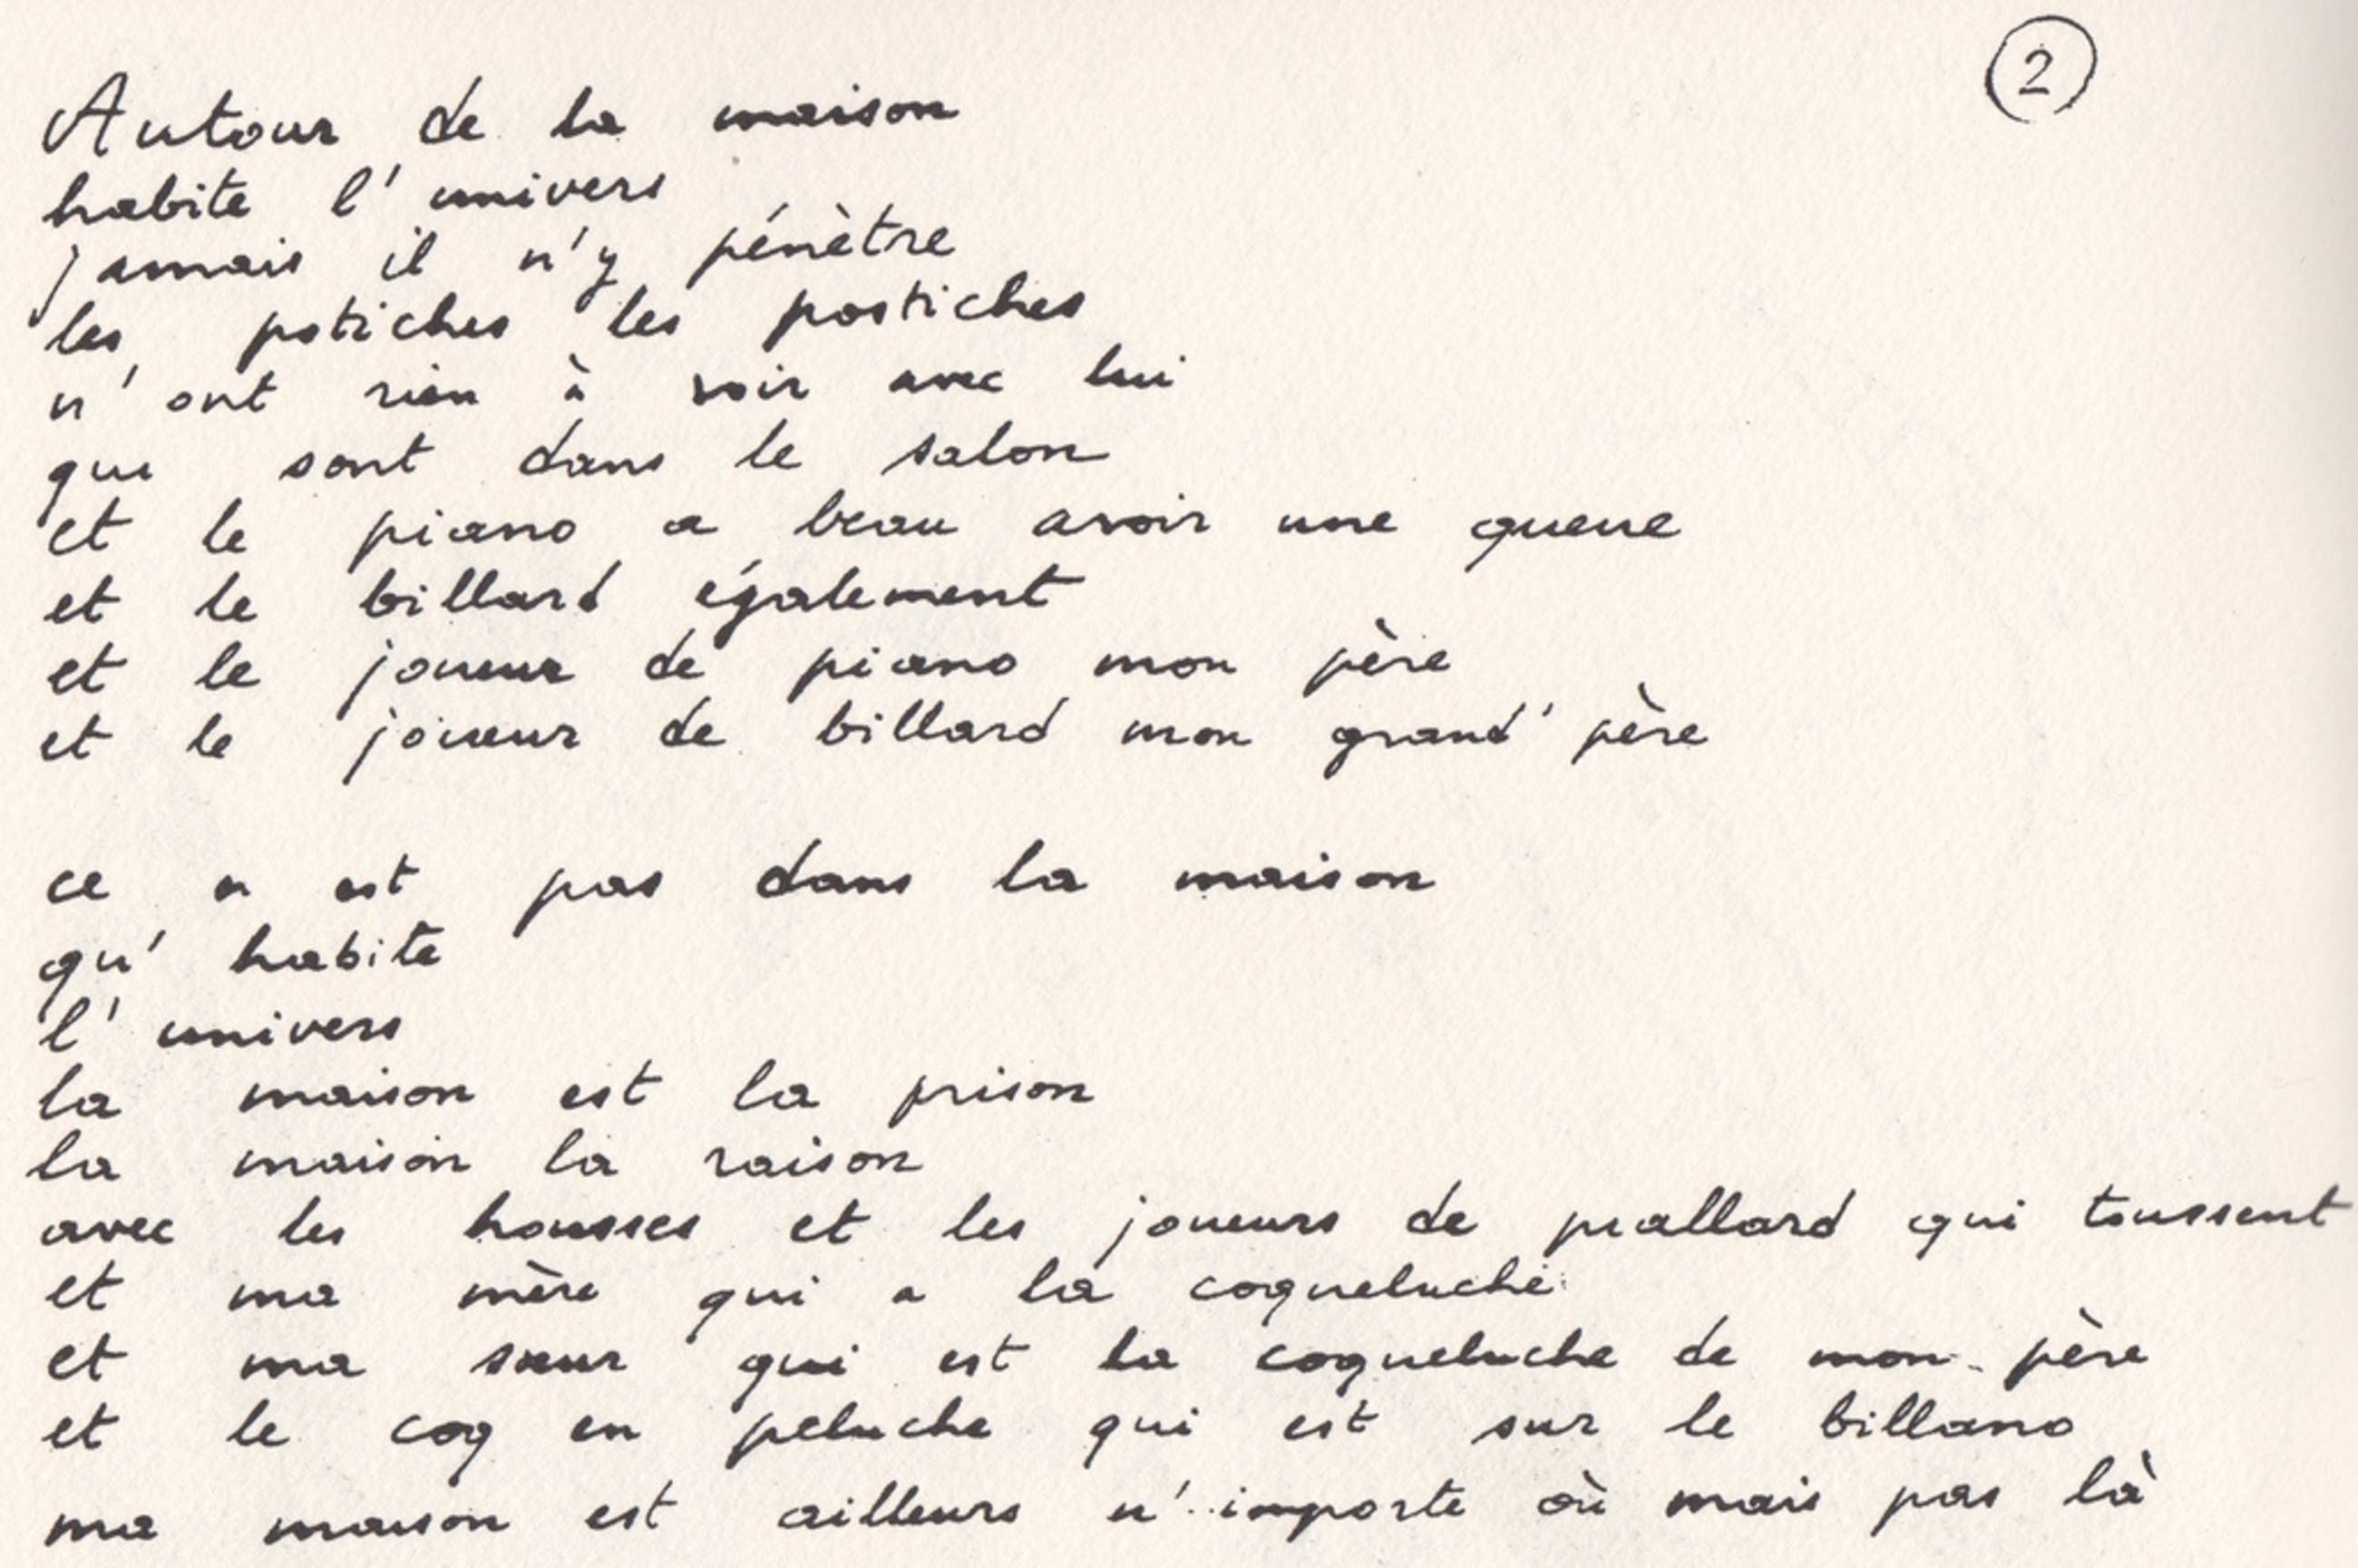 2
Autour de la maison
habite l' univers
jamais il n'y pénètre
les potiches les postiches
n' ont rien à voir avec lui
qui sont dans le salon
et le piano a beau avoir une queue
et le billard également
et le joueur de piano mon père
et le joueur de billard mon grand' père
ce n est pas dans la maison
qu' habite
l' univers
la maison est la prison
la maison la raison
avec les housses et les joueurs de piallard qui toussent
et ma mère qui a la coqueluche
et ma sœur qui est la coqueluche de mon père
et le coq en peluche qui est sur le billano
ma maison est ailleurs n' importe où mais pas là